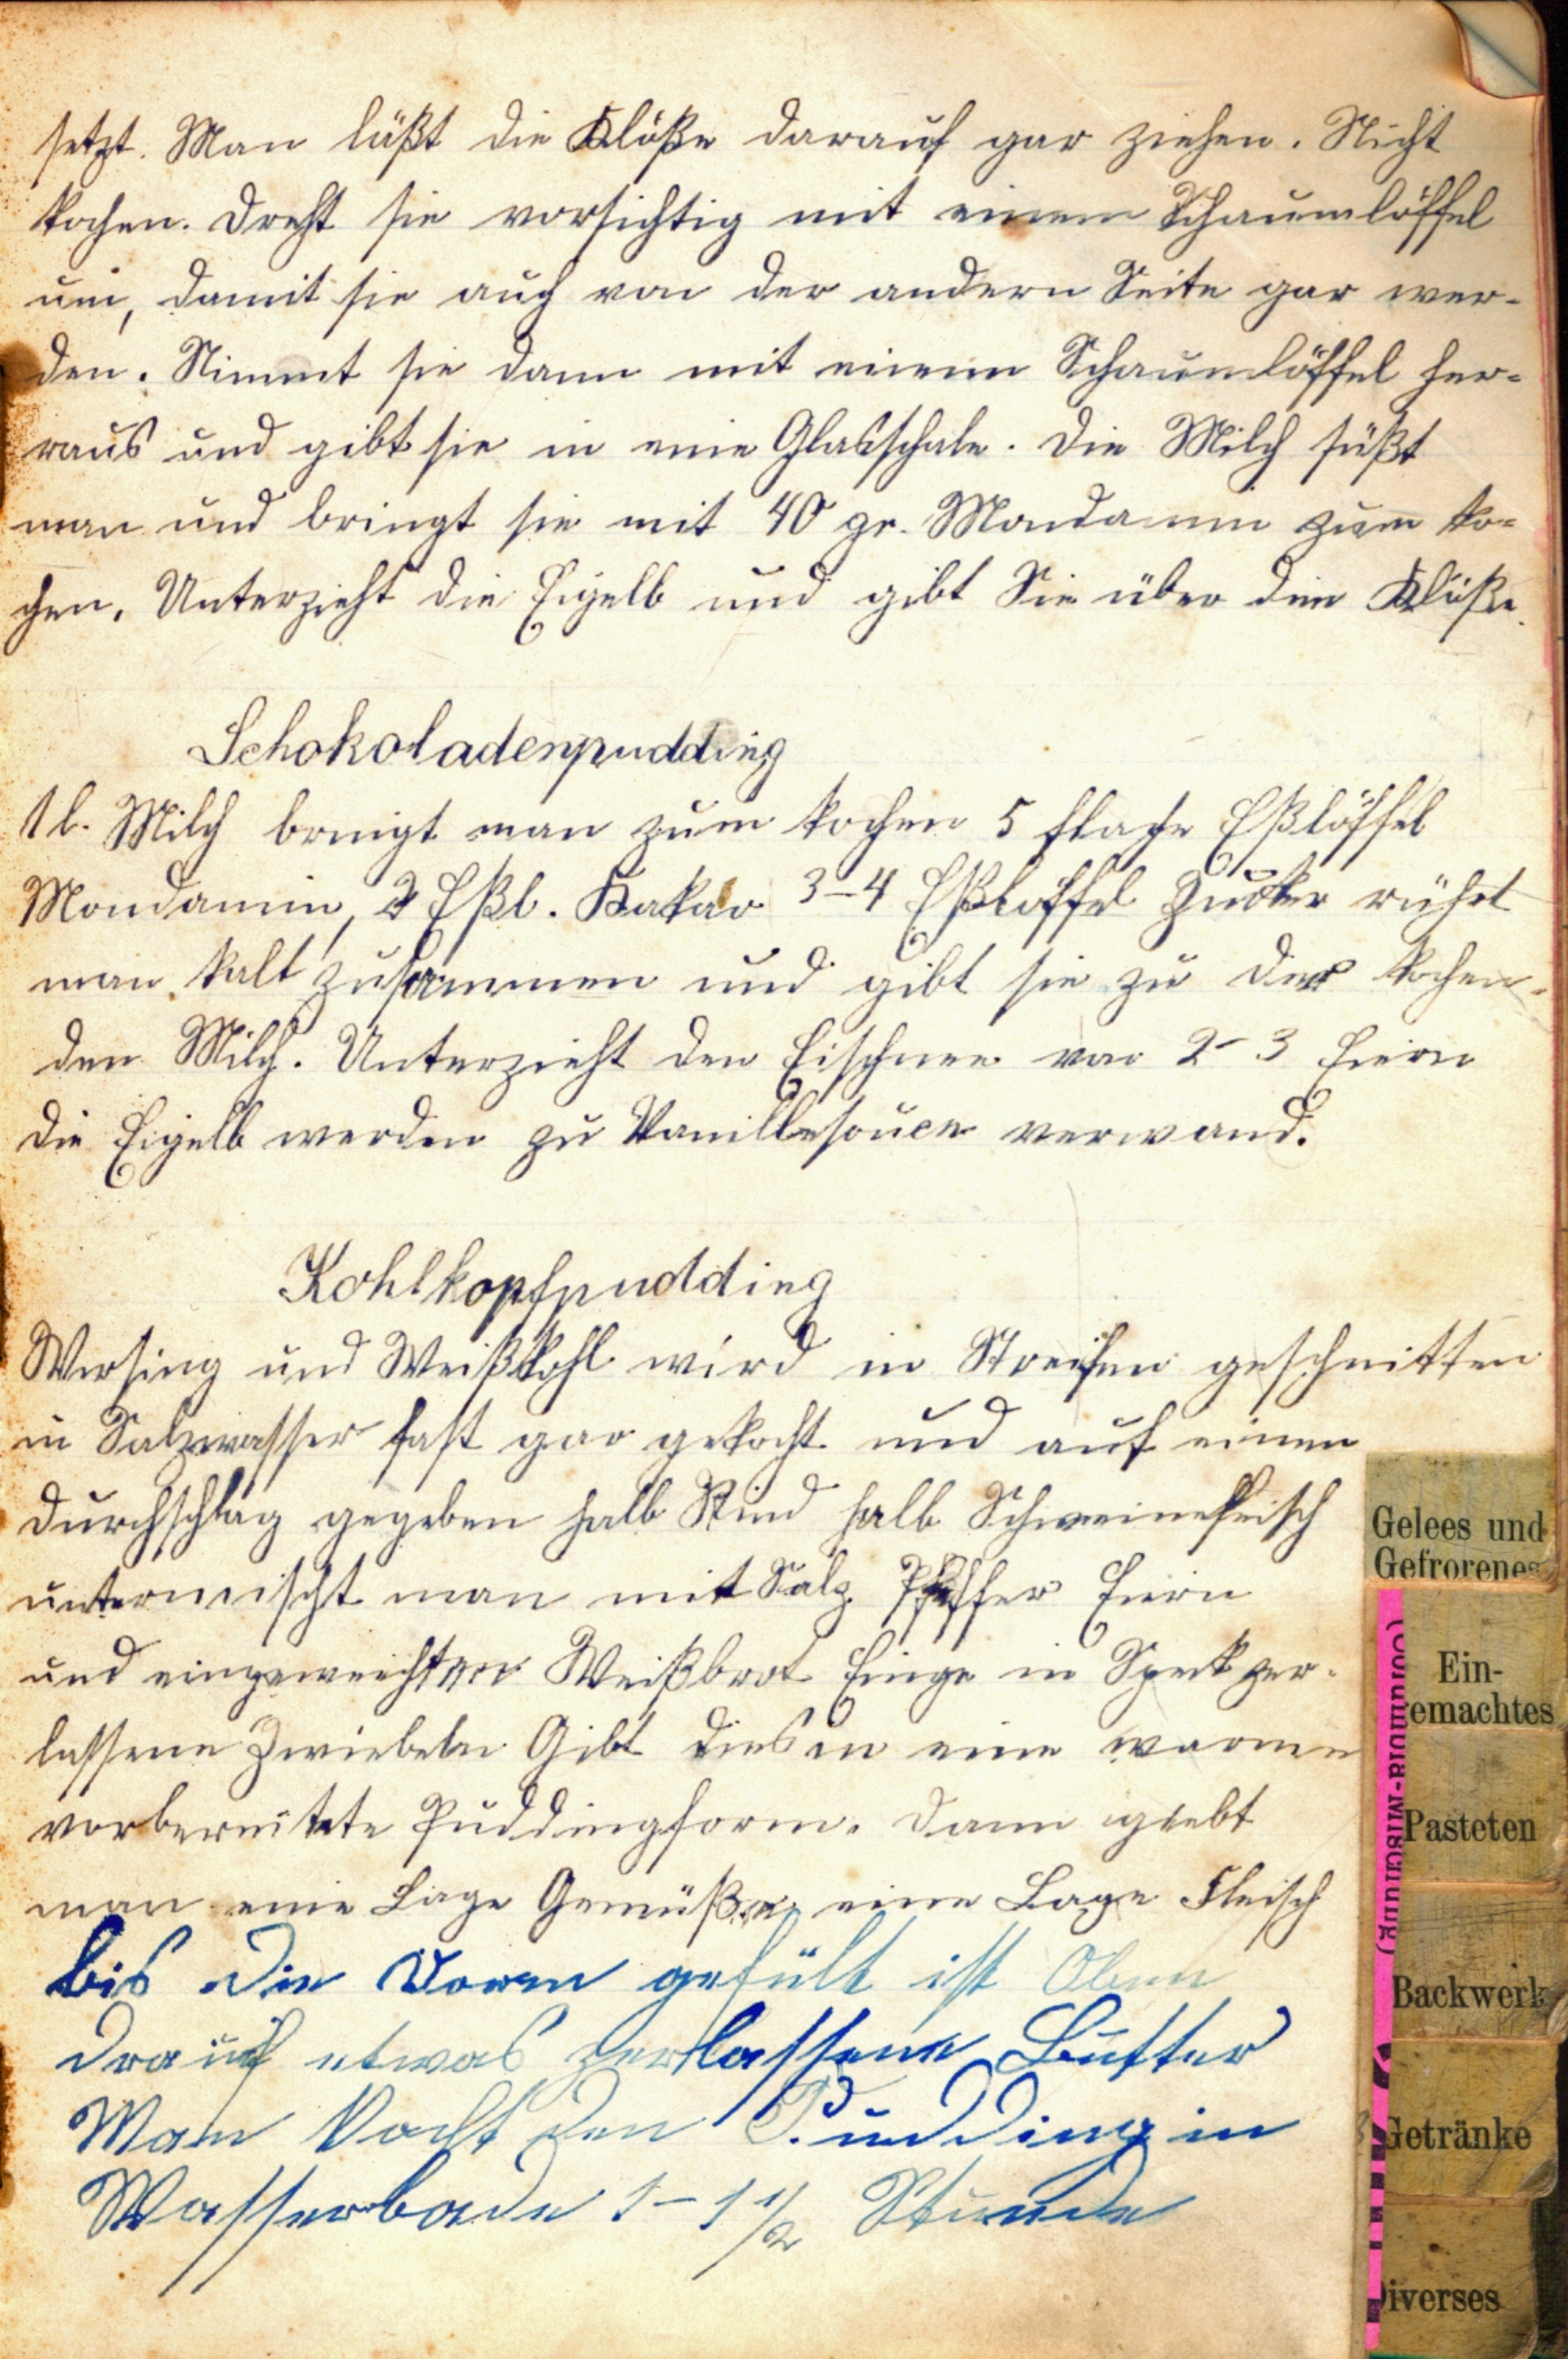 setzt. Man läßt die Klöße darauf gar ziehen. Nicht
kochen. Dreht sie vorsichtig mit einem Schaumlöffel
um, damit sie auch von der andern Seite gar wer-
den. Nimmt sie dann mit einem Schaumlöffel her-
raus und gibt sie in eine Glasschale. Die Milch süßt
man und bringt sie mit 40 gr. Mondamin zum ko-
chen. Unterzieht die Eigelb und gibt Sie über die Klöße.
Schokoladenpudding
1 l. Milch bringt man zum kochen 5 flache Eßlöffel
Mondamin, 2 Eßl. Kakao 3-4 Eßlöffel Zucker rührt
man kalt zusammen und gibt sie zu der kochen-
den Milch. Unterzieht den Eischnee von 2-3 Eiern
die Eigelb werden zu Vanillesouce verwand.
Kohlkopfpudding
Wirsing und Weißkohl wird in Streifen geschnitten
in Salzwasser fast gar gekocht und auf einen
Durchschlag gegeben halb Rind halb Schweinefleisch
untermischt man mit Salz Pfeffer Eiern
und eingeweichten Weißbrot Einge in Speck zer-
lassene Zwiebeln Gibt dies in eine warme
vorbereitete Puddingform. Dann giebt
man eine Lage Gemüße, eine Lage Fleisch
bis die Vorm gefült ist Oben
drauf etwas zerlassene Butter
Man kocht den Pudding in
Wasserbade 1-1 1/2 Stunde
Gelees und
Gefrorenes
Ein-
gemachtes
Pasteten
Backwerk
Getränke
Diverses